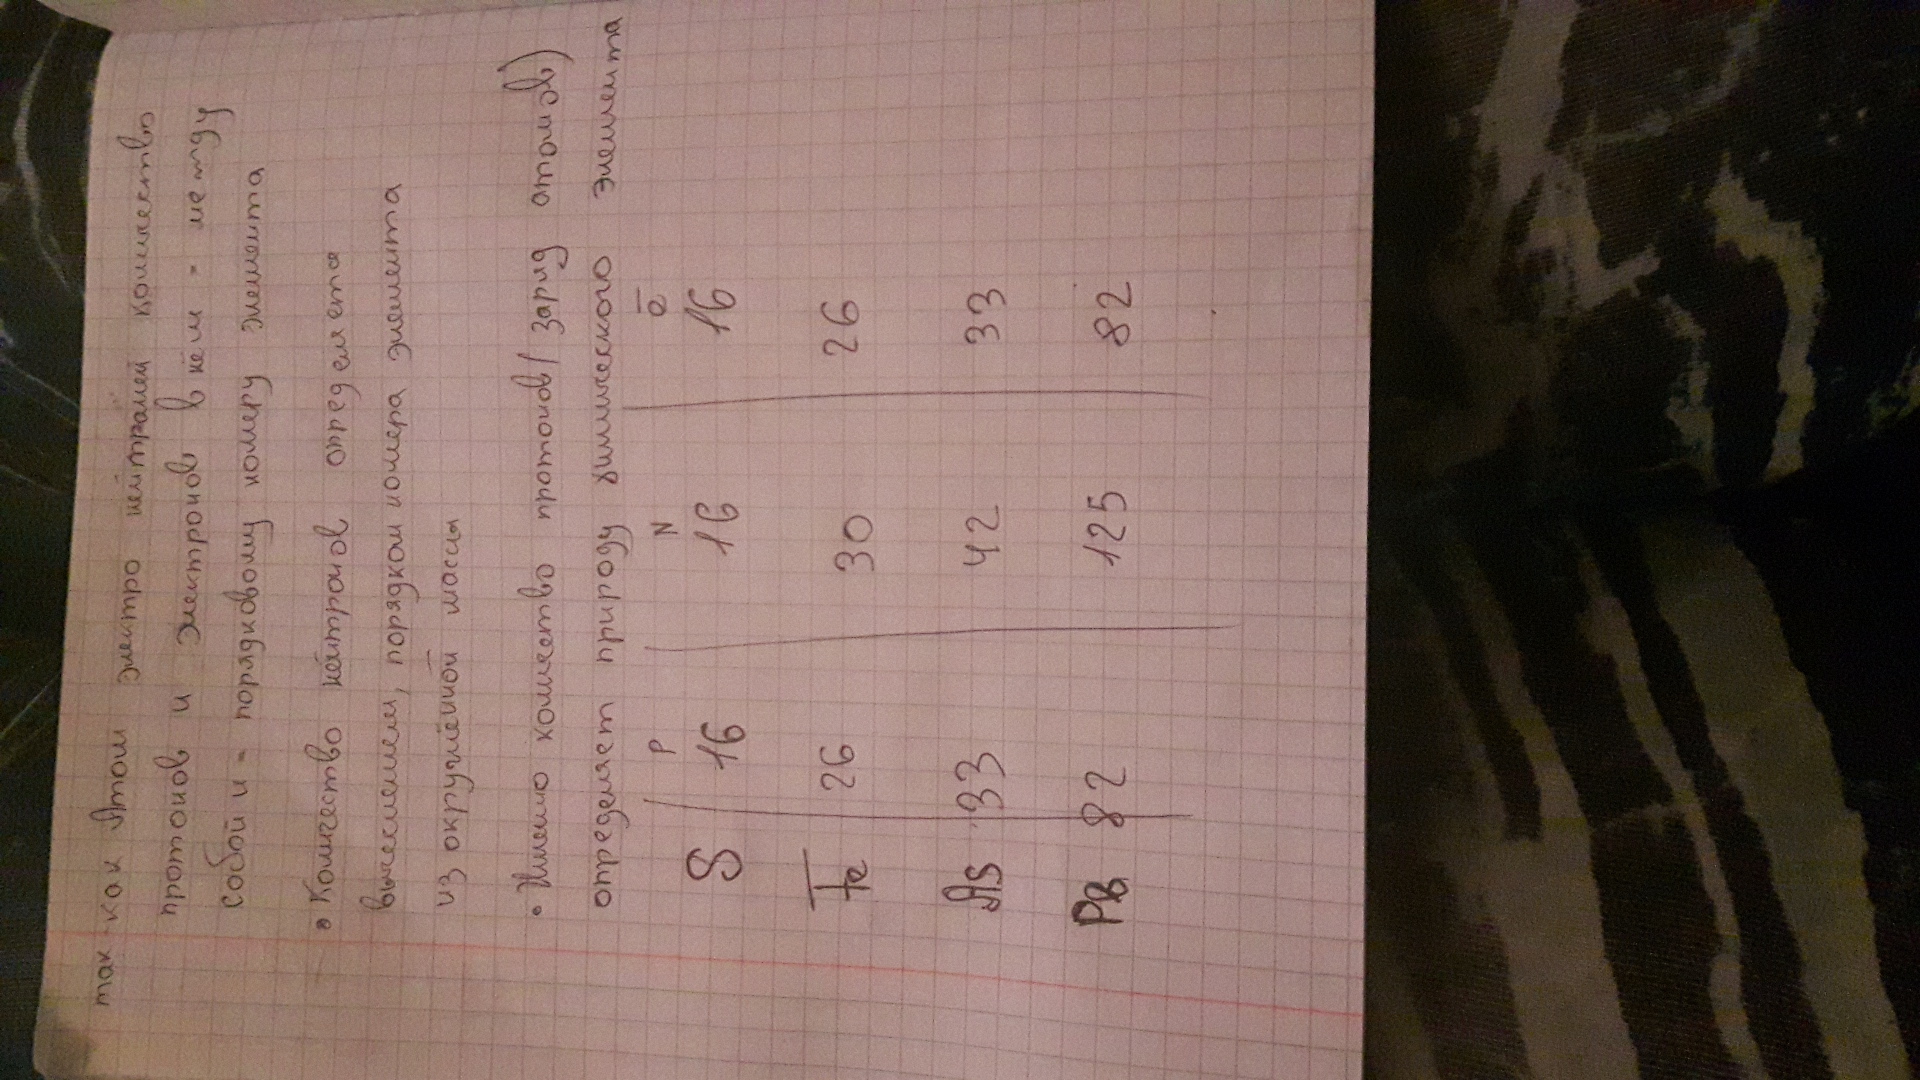 так как Атом электро нейтралей количество
протонов и электронов в нём = между
собой и = порядковому номеру элемента
• Количество нейтронов определяется
вычеслением, порядком номера элемента
из округлённой массы
• Именно количество протонов (заряд атомов)
определяет природу химического элемента
P N ē
S 16 16 16
Fe 26 30 26
As 33 42 33
Pb 82 125 82